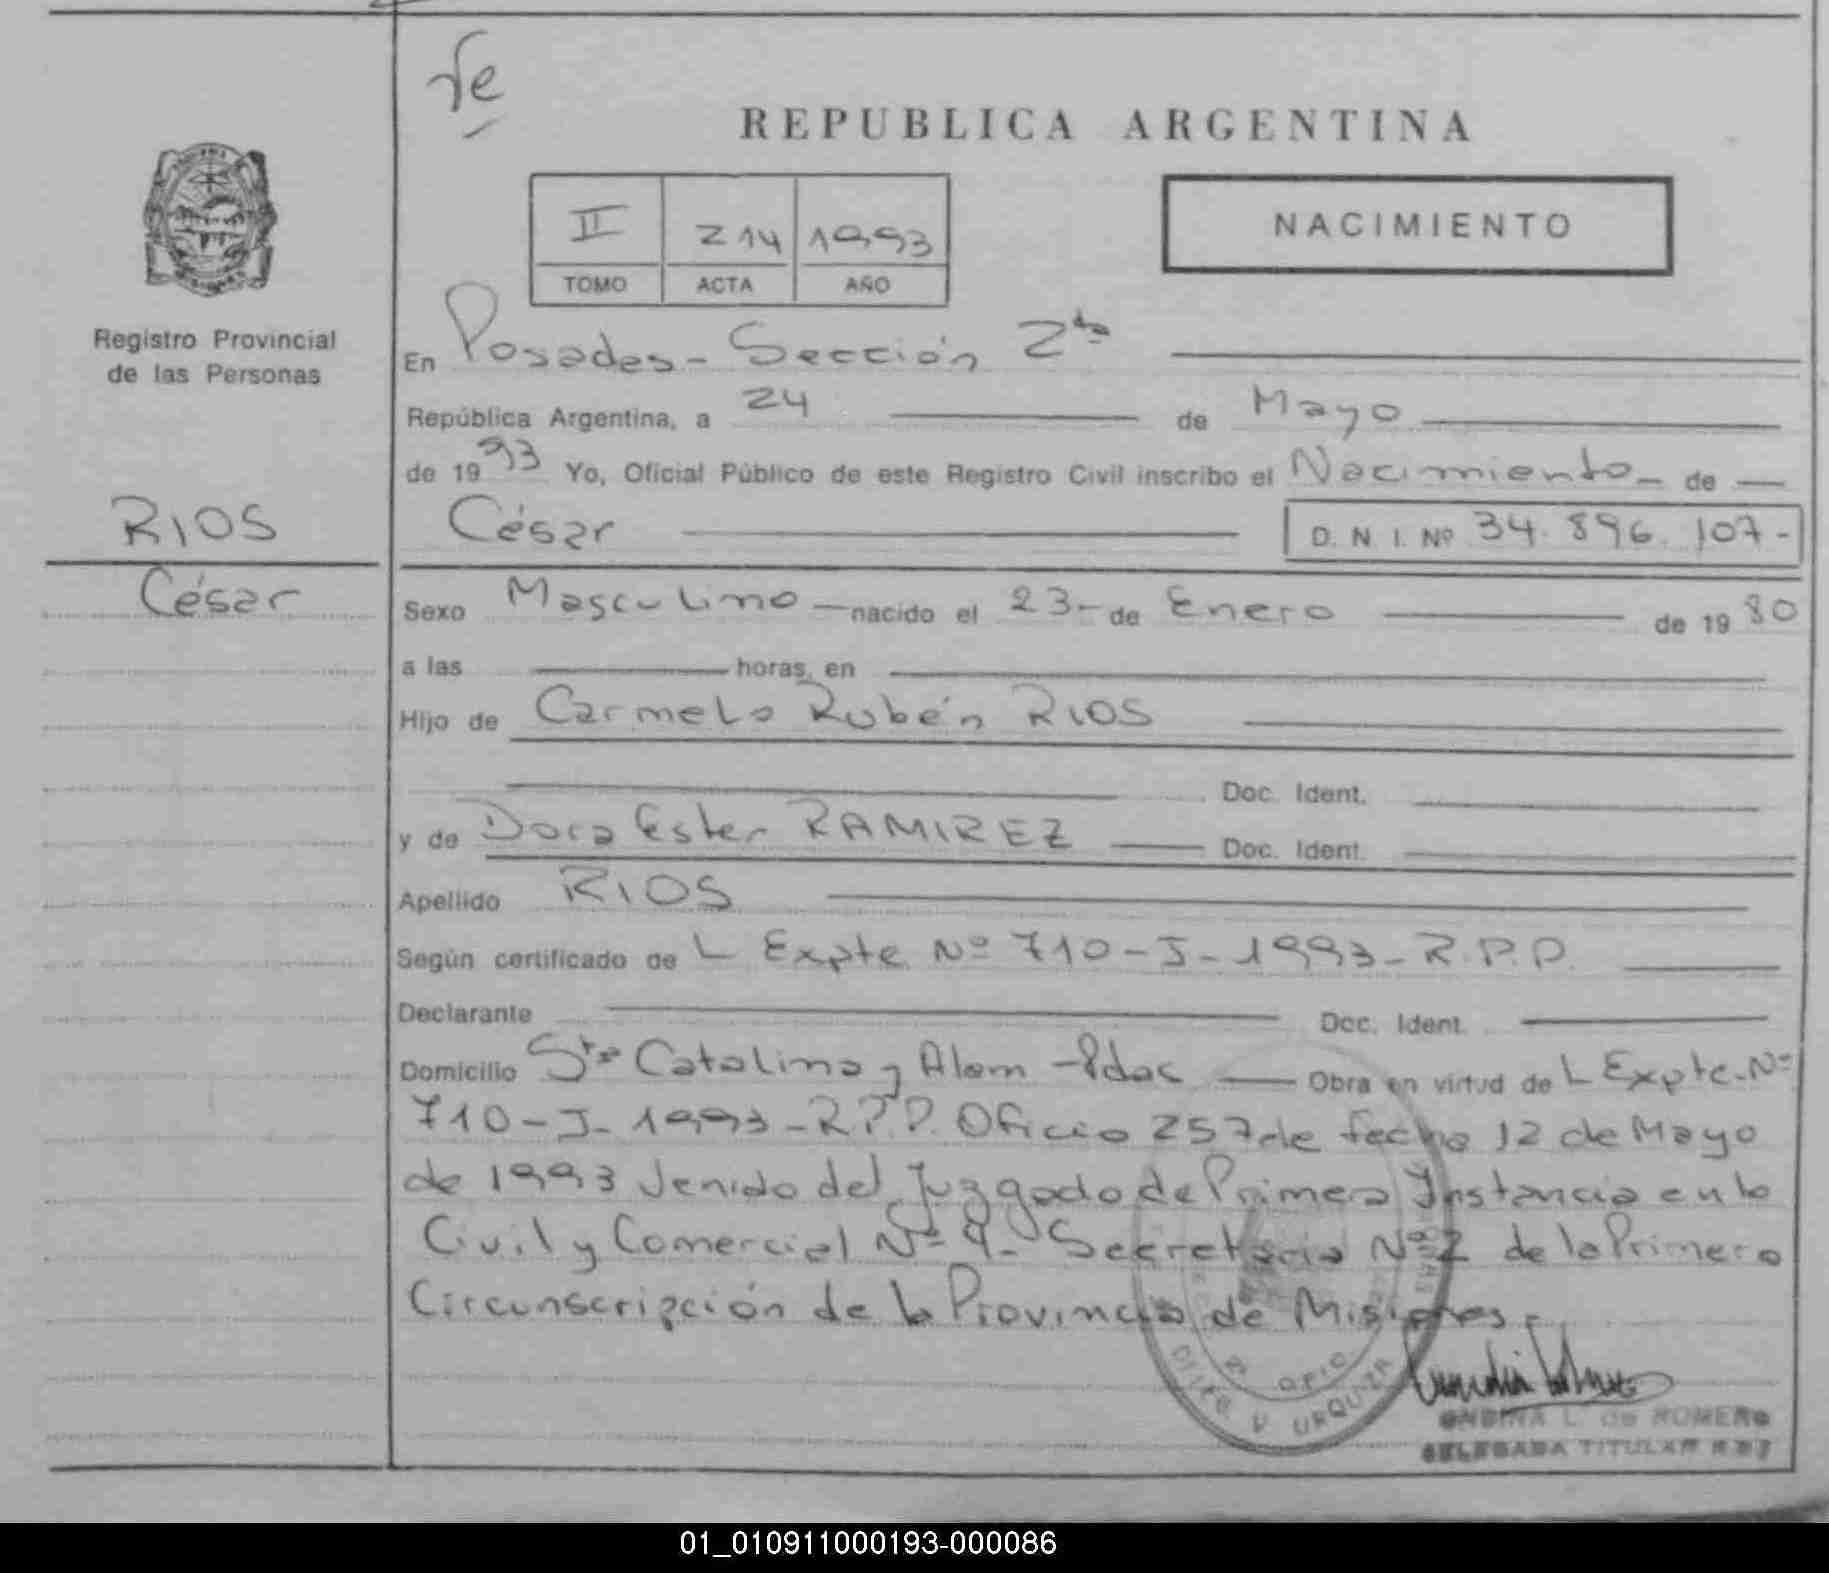 REPUBLICA ARGENTINA
II 214 1993
TOMO ACTA AÑO
NACIMIENTO
Registro Provincial
de las Personas
RIOS
César
En Posadas - Sección 2da
República Argentina, a 24 de Mayo
de 1993 Yo, Oficial Público de este Registro Civil inscribo el Nacimiento - de
César D. N. I. Nº 34.896.107-
Sexo Masculino nacido el 23- de Enero de 1980
a las horas, en
Hijo de Carmelo Rubén RIOS
Doc. Ident.
y de Dora Ester RAMIREZ Doc. Ident.
Apellido RIOS
Según certificado de L Expte Nº 710-J-1993-R.P.P.
Declarante Doc. Ident.
Domicilio Sta Catalina y Alem - Pdas Obra en virtud de L Expte. Nº
710-J-1993-R.P.P. Oficio 257 de fecha 12 de Mayo
de 1993 venido del Juzgado de Primera Instancia en lo
Civil y Comercial Nº 4- Secretaria Nº 2 de la Primera
Circunscripción de la Provincia de Misiones.
OFIC.
URQUIZA
ONDINA L. de ROMERO
DELEGADA TITULAR
01_010911000193-000086